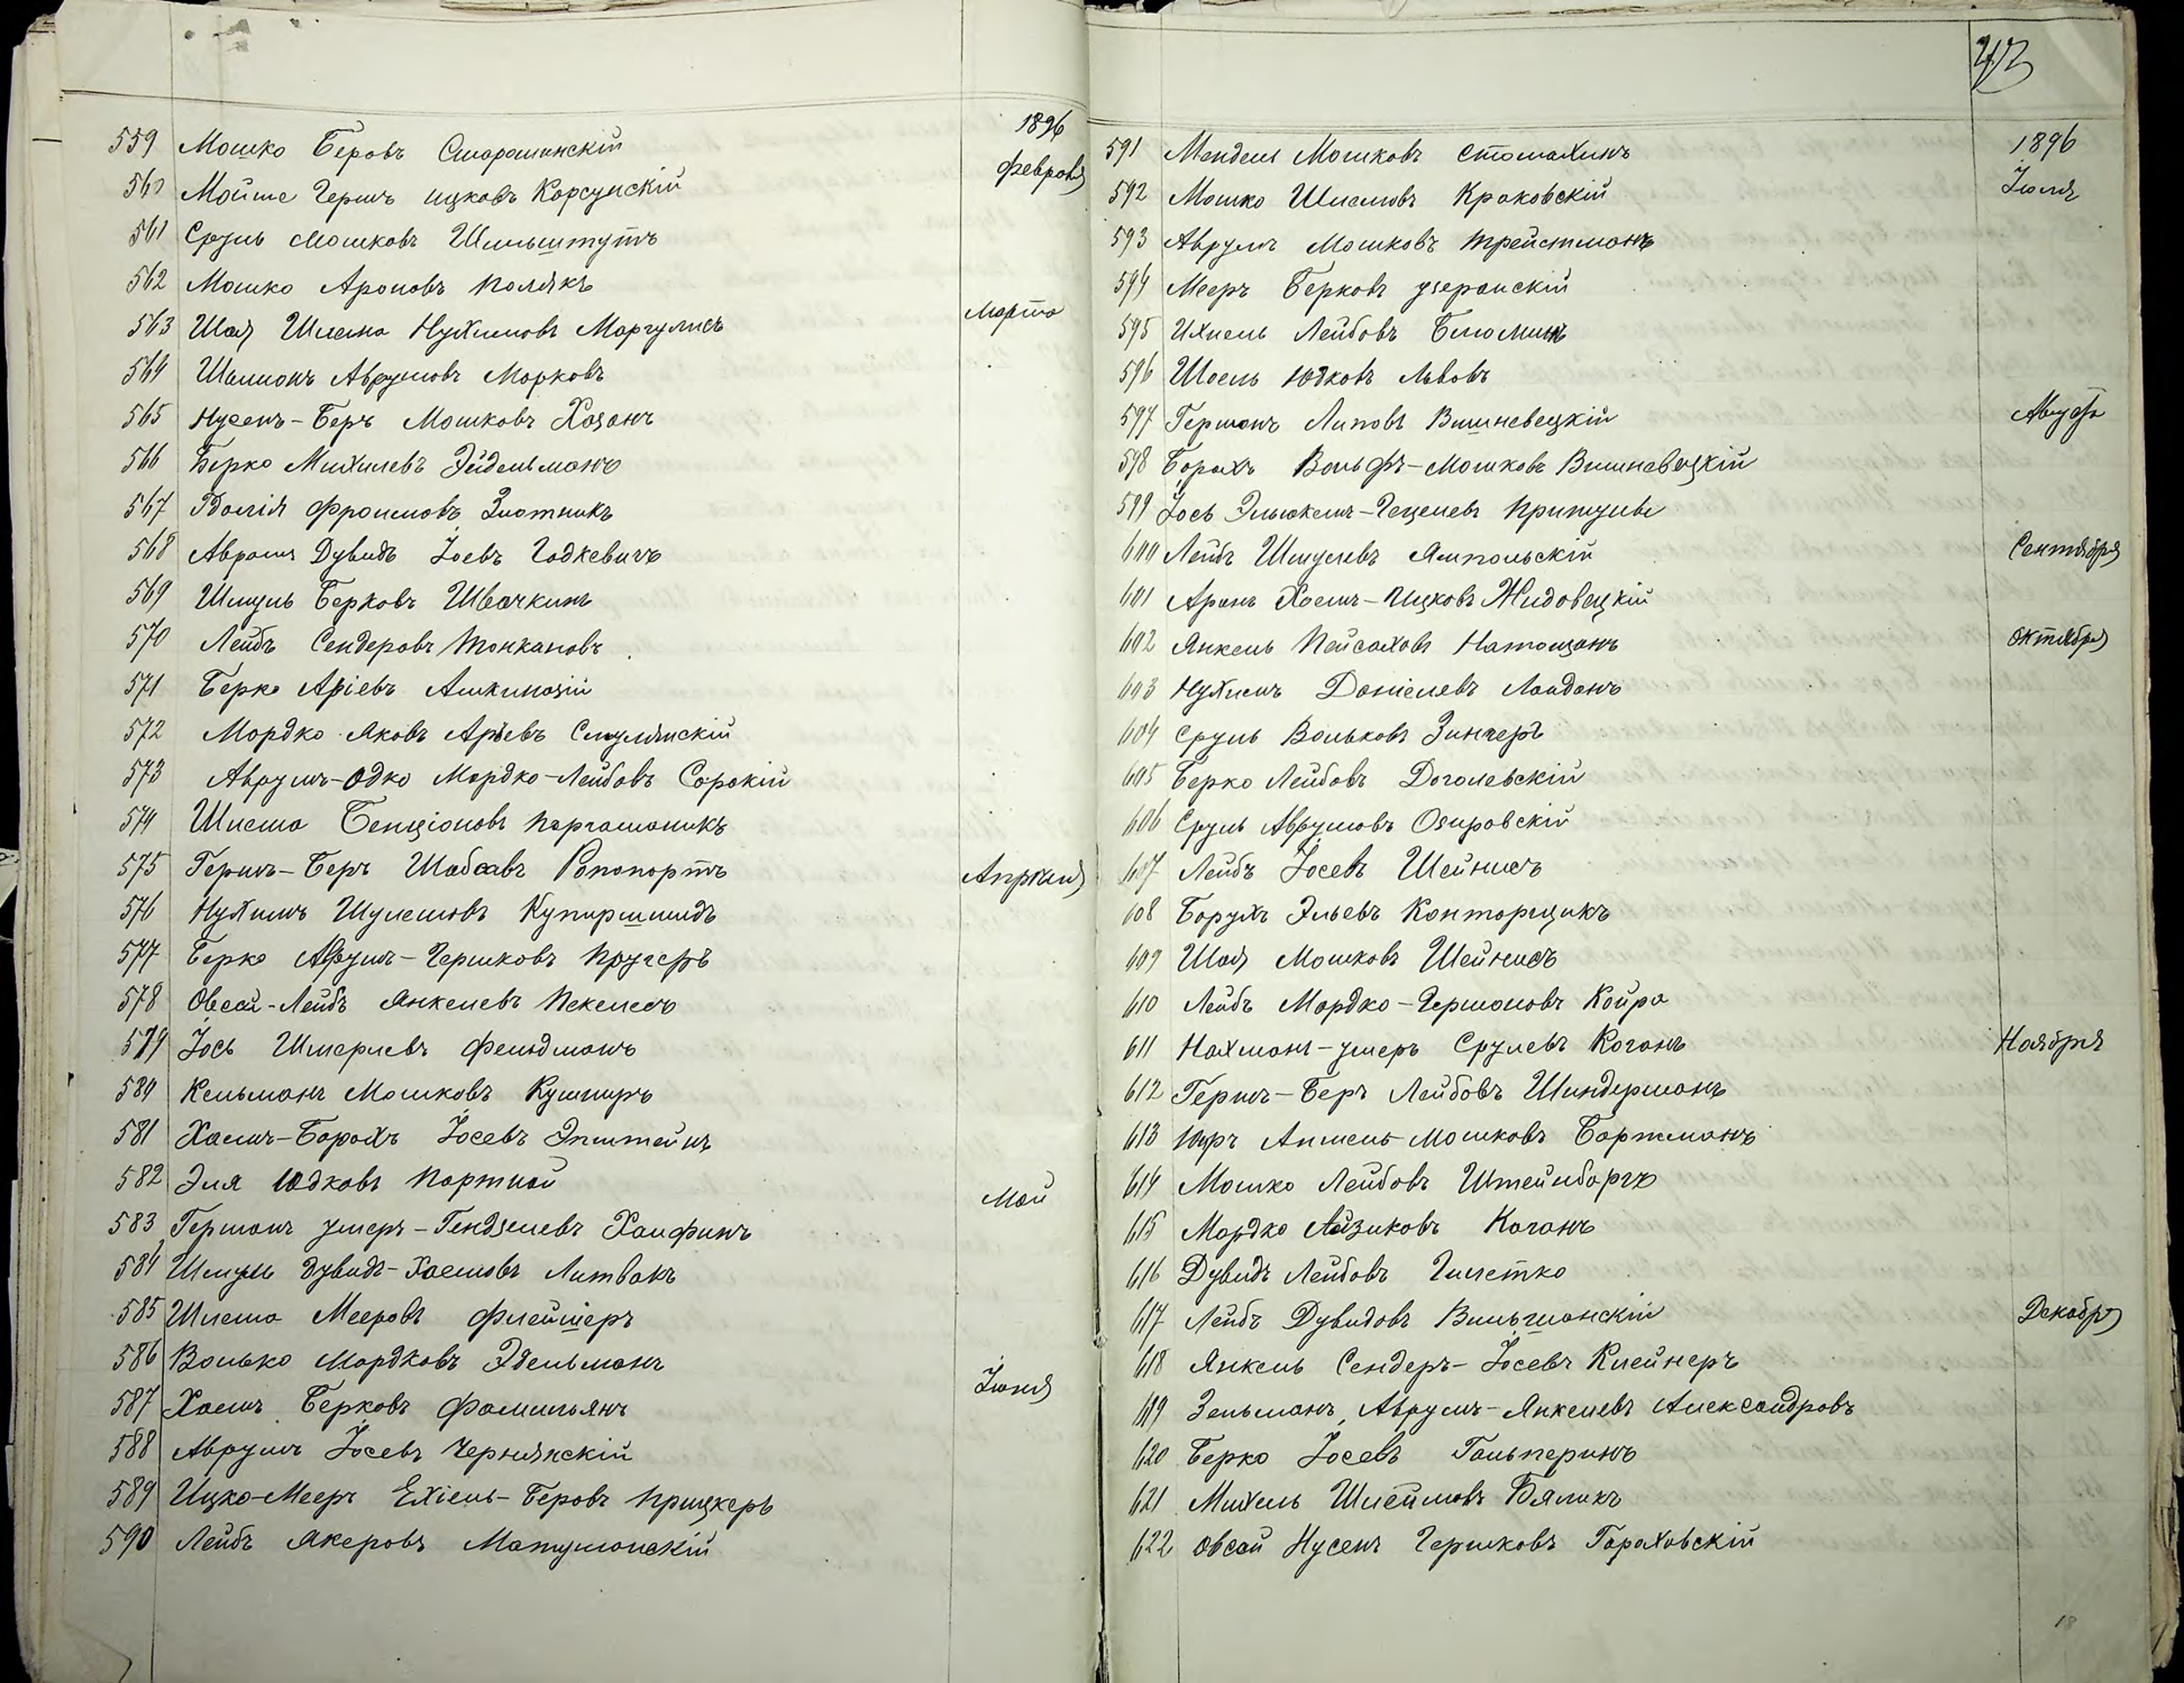 1896
559 Мошко Беровъ Старошинскій Февраля
560 Мойше Гершъ Ицковъ Корсунскій
561 Сруль Мошковъ Шильштутъ
562 Мошко Ароновъ Полякъ
563 Шая Шлема Нухимовъ Маргулисъ Марта
564 Шлиомъ Аврумовъ Марковъ
565 Нусенъ-Беръ Мошковъ Хазанъ
566 Берко Михилевъ Эйдельманъ
567 Вдолія Фроимовъ Злотникъ
568 Аврамъ Дувидъ Іосевъ Годкевичъ
569 Шмуль Берковъ Швачкинъ
570 Лейбъ Сендеровъ Тонкановъ
571 Берко Аріевъ Ашкинозій
572 Мордко Яковъ Арьевъ Смулянскій
573 Аврумъ-Одко Мордко-Лейбовъ Сорокій
574 Шлема Бенціоновъ Пергаманикъ
575 Гершъ-Беръ Шабсавъ Ропопортъ Апрѣля
576 Нухимъ Шулемовъ Купиршмидъ
577 Берко Аврумъ-Гершковъ Пругеръ
578 Овсей-Лейбъ Янкелевъ Пекелесъ
579 Іось Шмерлевъ Фельдманъ
580 Кельманъ Мошковъ Кушниръ
581 Хаимъ-Борохъ Іосевъ Эпштейнъ
582 Эля Юдковъ Портной Май
583 Германъ Умеръ-Гендзелевъ Хаифинъ
584 Шмуль Дувидъ-Хаемовъ Литвакъ
585 Шлема Мееровъ Флейшеръ
586 Волько Мордковъ Эдельманъ Іюня
587 Хаимъ Берковъ Фамильянъ
588 Аврумъ Іосевъ Чернякскій
589 Ицко-Мееръ Ехіель-Беровъ Прицкеръ
590 Лейбъ Якеровъ Матушонскій
42
1896
591 Мендель Мошковъ Стомахинъ Іюля
592 Мошко Шлемовъ Краковскій
593 Аврумъ Мошковъ Трейстманъ
594 Мееръ Берковъ Узеранскій
595 Ихиель Лейбовъ Блюминъ
596 Шоель Юдковъ Львовъ
597 Германъ Липовъ Вишневецкій Августа
598 Борохъ Вольфъ-Мошковъ Вишневецкій
599 Іось Эльюкимъ-Гецелевъ Притулье
600 Лейбъ Шмулевъ Ямпольскій Сентября
601 Аронъ Хаемъ-Ицковъ Жидовецкій
602 Янкель Пейсаховъ Натоцанъ Октября
603 Нухимъ Даніелевъ Ландонъ
604 Сруль Вольковъ Зингеръ
605 Берко Лейбовъ Доголевскій
606 Сруль Аврумовъ Озировскій
607 Лейбъ Іосевъ Шейнисъ
608 Борухъ Эльевъ Конторщикъ
609 Шая Мошковъ Шейнисъ
610 Лейбъ Мордко-Гершоновъ Койра
611 Нахманъ-Умеръ Срулевъ Коганъ Ноября
612 Гершъ-Беръ Лейбовъ Шиндерманъ
613 Юръ Аншель-Мошковъ Бортманъ
614 Мошко Лейбовъ Штейнбаргъ
615 Мордко Айзиковъ Коганъ
616 Дувидъ Лейбовъ Гилетко
617 Лейбъ Дувидовъ Вильшанскій Декабря
618 Янкель Сендеръ-Іосевъ Клейнеръ
619 Зельманъ, Аврумъ-Янкелевъ Александровъ
620 Берко Іосевъ Гольперинъ
621 Михель Шлеймовъ Бяликъ
622 Овсей Нусенъ Гершковъ Гороховскій
18